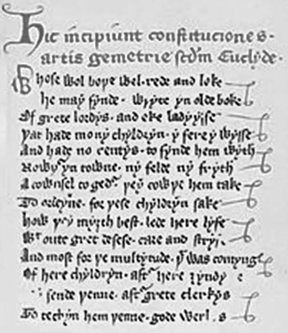 Hic incipiunt constituciones
artis gemetrie scdm Euclyde.
Whose wol boþe wel rede and loke
he may fynde wryte yn olde boke
Of grete lordys and eke ladyysse
Þat hade mony chyldryn y fere y wysse
And hade no rentys to fynde hem wyth
Nowþer yn towne ny felde ny fryth
A cownsel togedr þey cowþe hem take
To ordeyne for þese chyldryn sake
how þey myȝth best lede here lyfe
Wt oute gret desese care and stryf
And most for þe multytude þt was comyng
Of here chyldryn aftr here
sende þenne aftr grete clerkys
To techyn hem þenne gode werkys